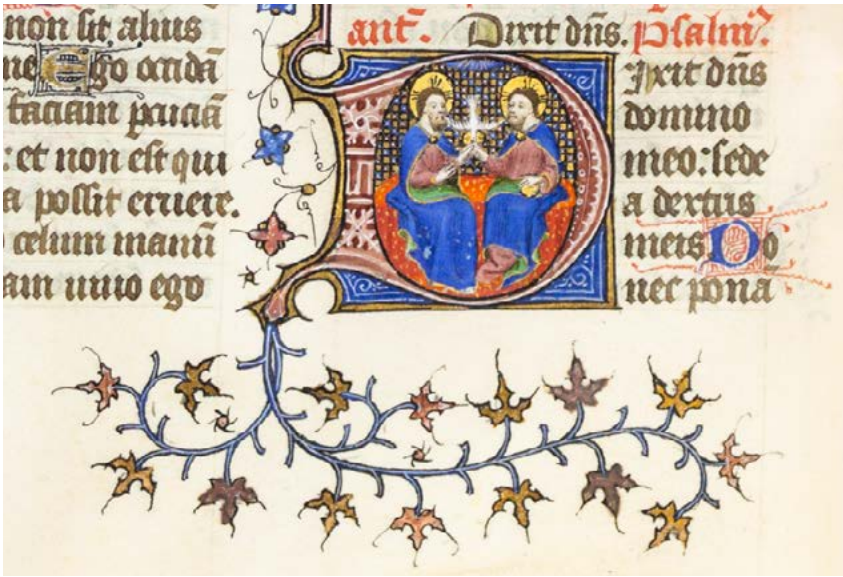 non sit alius
me Ego occidā
faciam percuciā
: et non est qui
a possit eruere.
celum manū
am uiuo ego
ant̄. Dixit dn̄s. Psalm̄.
Dixit dn̄s
domino
meo: sede
a dextris
meis Do
nec pona